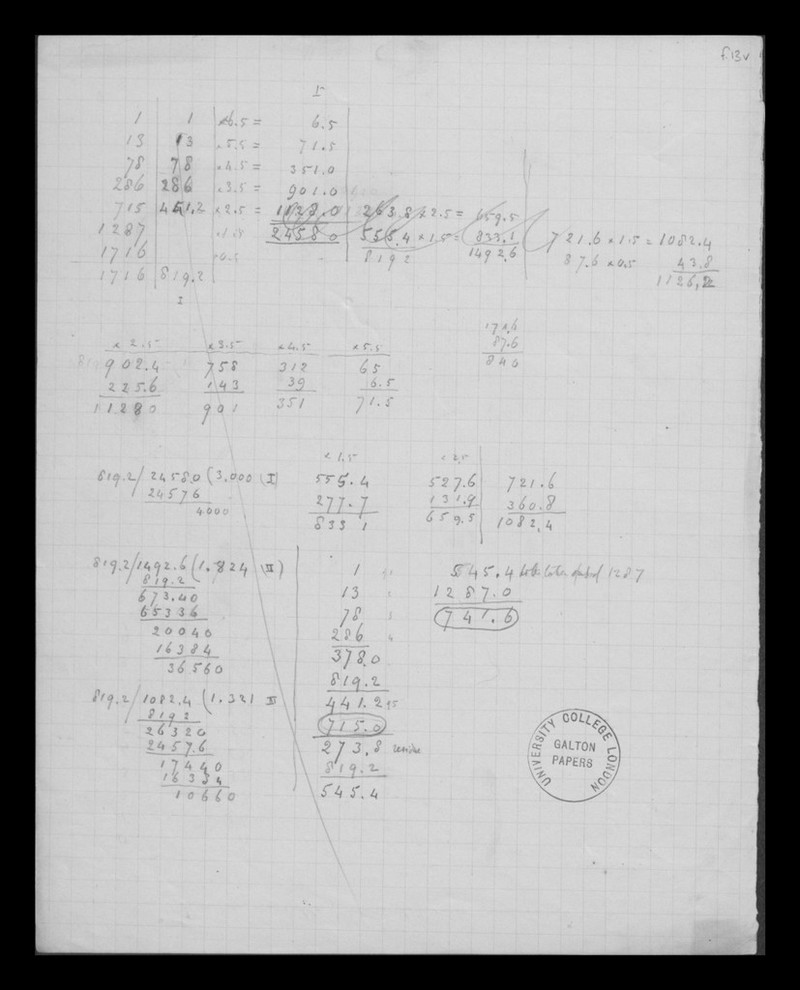 f.13v
I
1 1 x6.5 = 6.5
13 13 x5.5 = 71.5
78 78 x4.5 = 351.0
286 286 x3.5 = 901.0
715 441.2 x2.5 = 1128.0 263.8 x 2.5 = 659.5
1287 x1.5 2458.0 555.4 x 1.5 = 833.1 721.6 x 1.5 = 1082.4
1716 x0.5 819.2 1492.6 87.6 x 0.5 43.8
1716 819.2 1126.2
I
x 2.5 x3.5 x4.5 x5.5
902.4 758 312 65
225.6 143 39 6.5
11280 901 351 71.5
87.6
840
x 1.5 x 2.5
819.2/2458.0(3.000 (I) 555.4 527.6 721.6
24576 277.7 131.9 360.8
4000 833 1 659.5 1082.4
819.2/1492.6(1.824 (II)
819.2
673.40
65336
20040
16384
36560
819.2/1082.4(1.321 III
8192
26320
2457.6
17440
16384
10660
1
13
78
286
378.0
819.2
441.2
715.0
273.8 residue
819.2
545.4
545.4 1287
1287.0
741.6
UNIVERSITY COLLEGE LONDON
GALTON
PAPERS